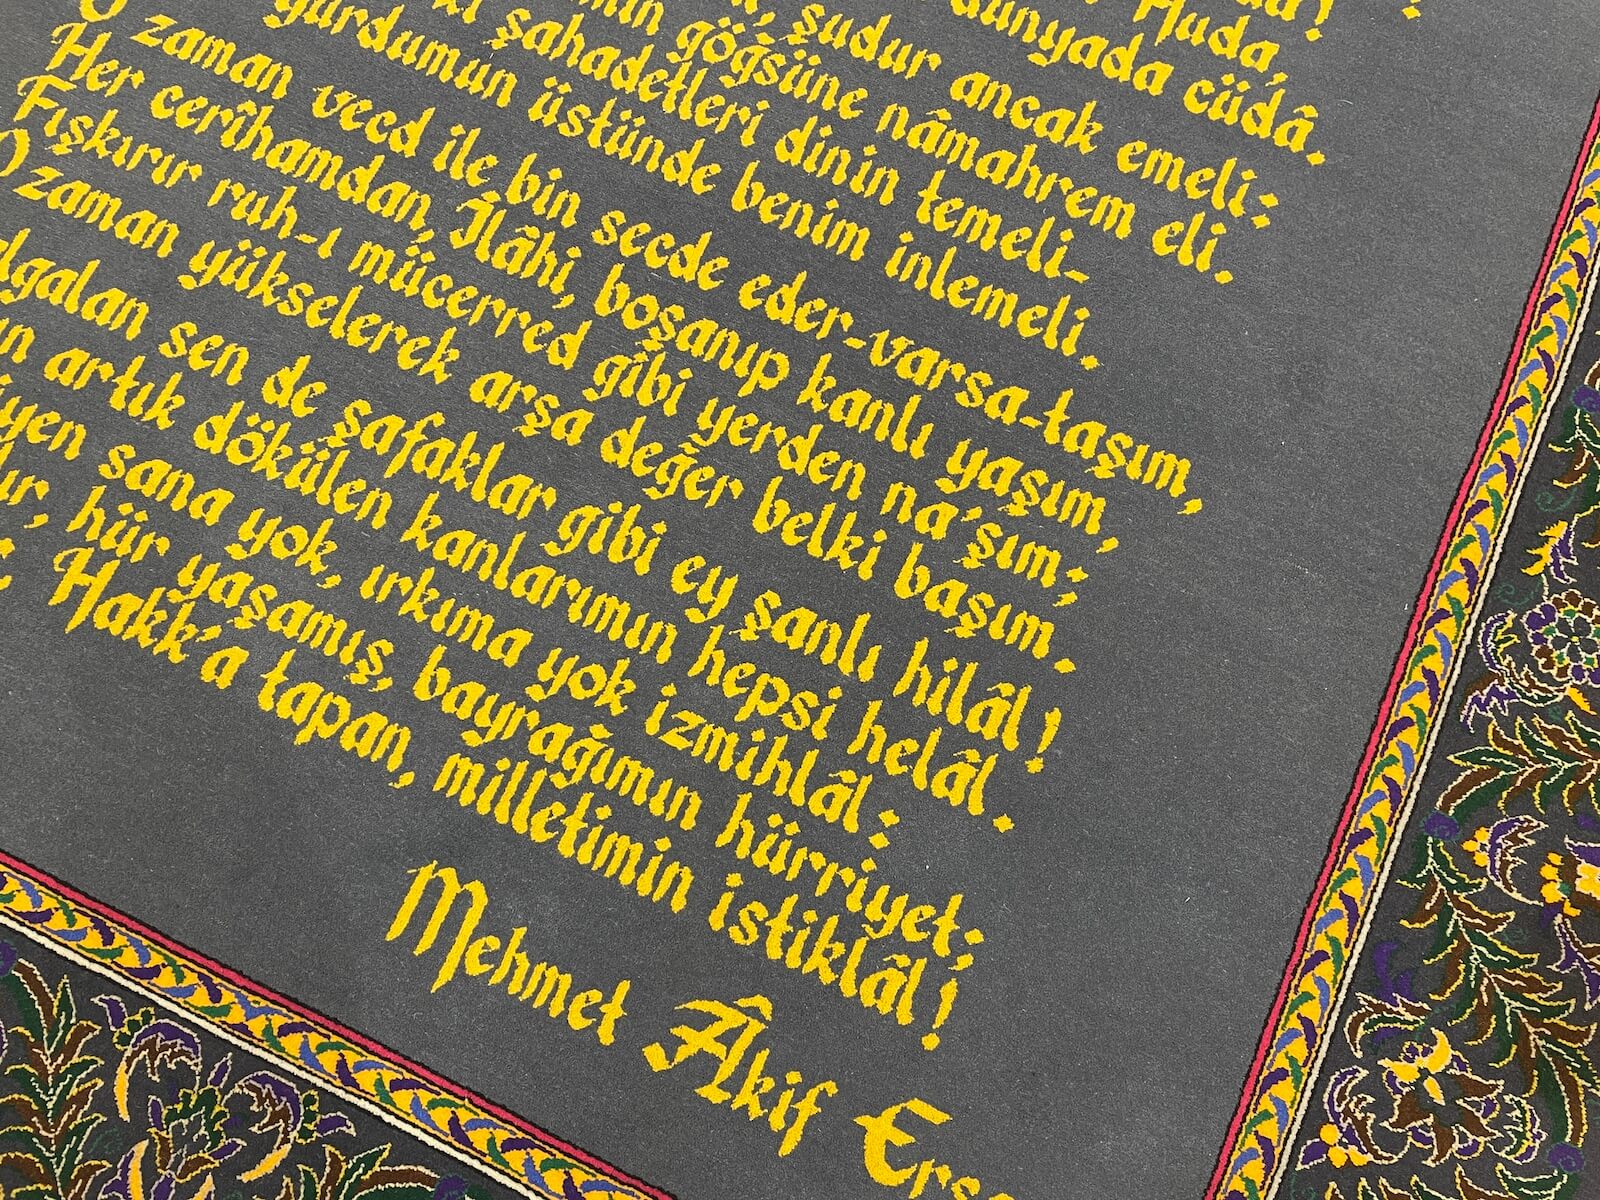 Huda,
dünyada cüdâ.
şudur ancak emeli:
göğsüne nâmahrem eli.
şahadetleri dinin temeli-
yurdumun üstünde benim inlemeli.
O zaman vecd ile bin secde eder-varsa-taşım,
Her cerîhamdan, İlâhi, boşanıp kanlı yaşım,
Fışkırır ruh-ı mücerred gibi yerden na'şım;
O zaman yükselerek arşa değer belki başım.
lgalan sen de şafaklar gibi ey şanlı hilâl!
n artık dökülen kanlarımın hepsi helâl.
yen sana yok, ırkıma yok izmihlâl:
hür yaşamış, bayrağımın hürriyet;
Hakk'a tapan, milletimin istiklâl!
Mehmet Âkif Erso